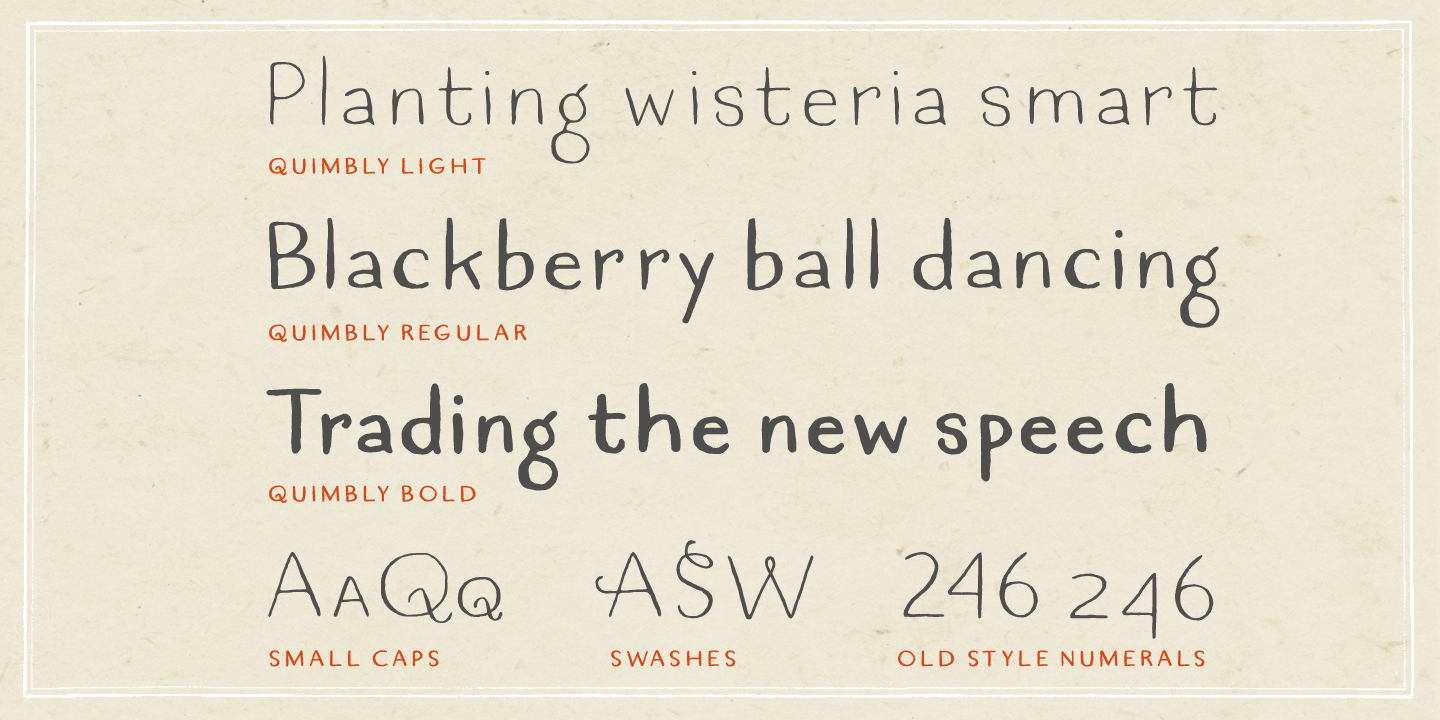 Planting wisteria smart
QUIMBLY LIGHT
Blackberry ball dancing
QUIMBLY REGULAR
Trading the new speech
QUIMBLY BOLD
AAQQ ASW 246 246
SMALL CAPS SWASHES OLD STYLE NUMERALS